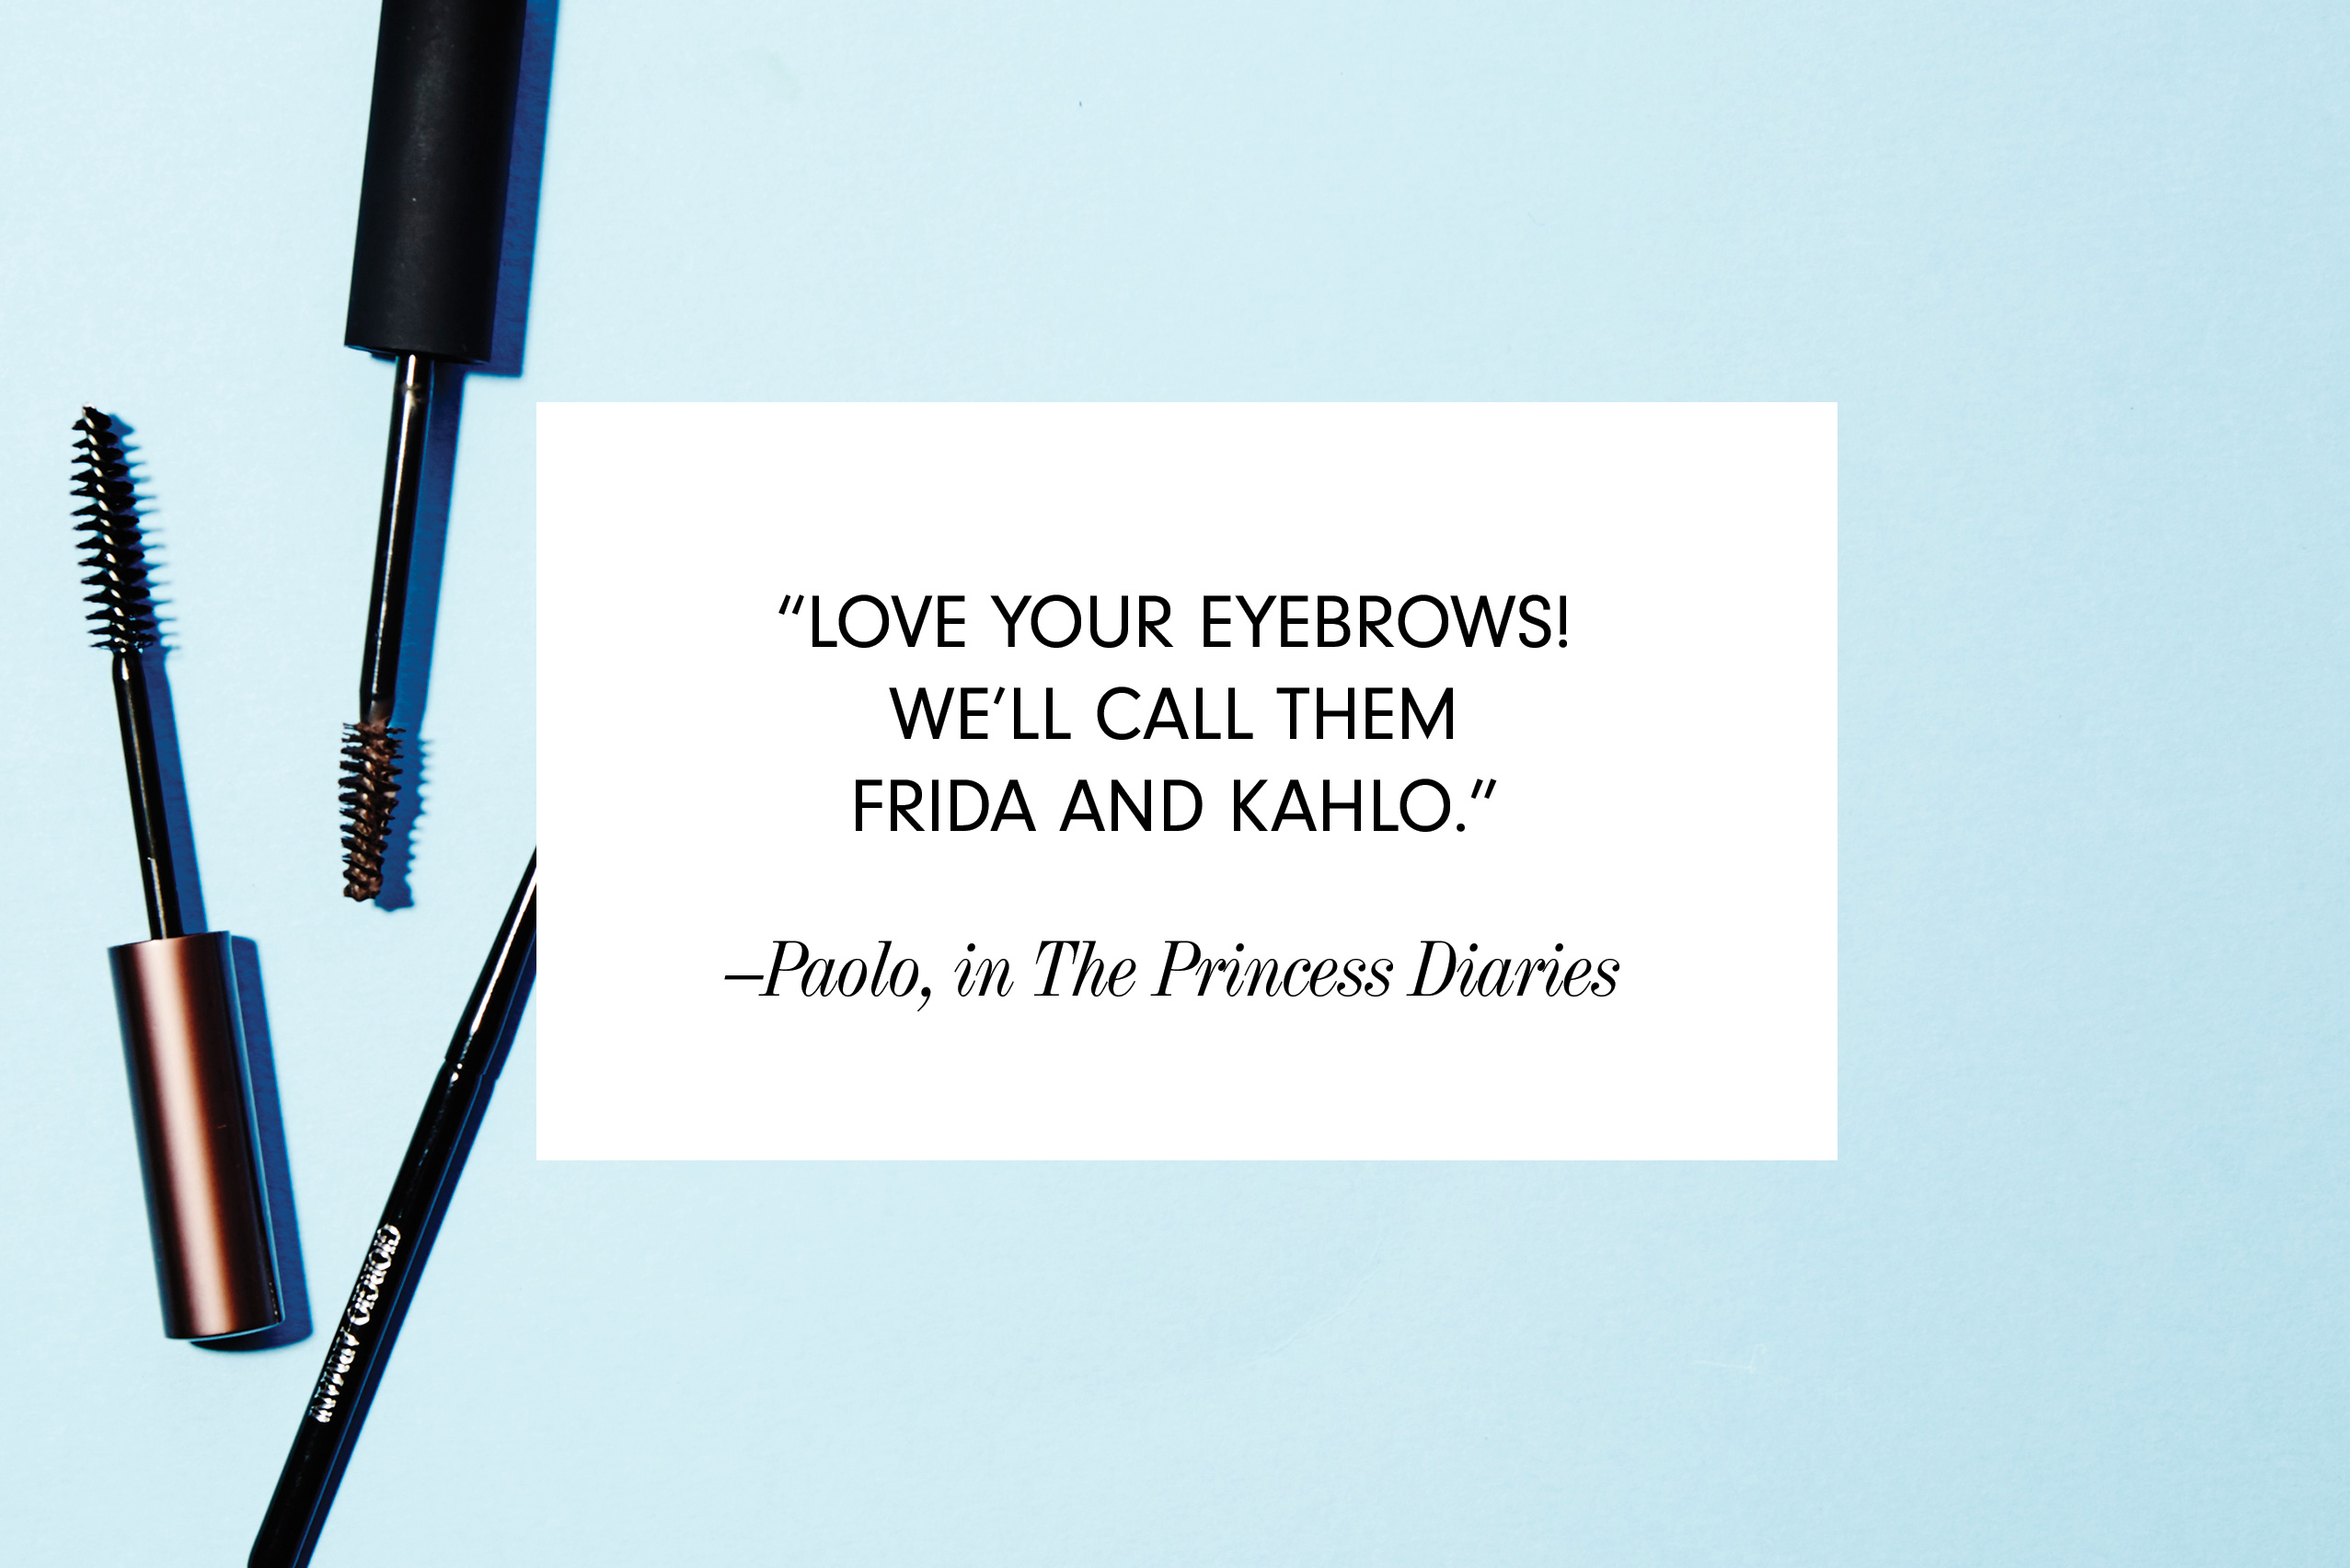 “LOVE YOUR EYEBROWS!
WE’LL CALL THEM
FRIDA AND KAHLO.”
–Paolo, in The Princess Diaries
GIORGIO ARMANI